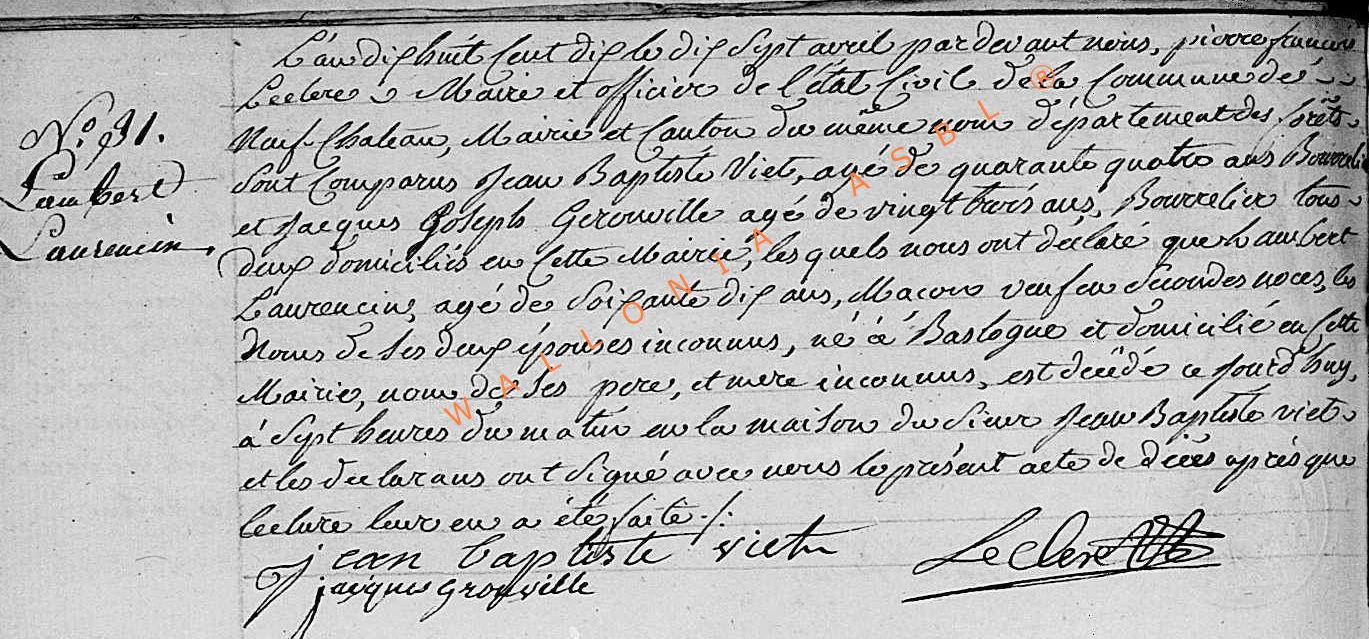 N.° 31.
Lambert
Laurencin,
L'an dix huit Cent dix le dix Sept avril pardevant nous, pierre francois
Leclere Maire et officier de l'état Civil de la Commune de
Neuf-Chateau, Mairie et Canton du même nom département des forêts
Sont Comparus Jean Baptiste Viet, agé de quarante quatre ans Bourrelier
et Jacques Joseph Gerouville agé de vingt trois ans, Bourrelier tous
deux domiciliés en Cette Mairie, les quels nous ont déclaré que Lambert
Laurencin, agé de Soixante dix ans, Macon veuf en Secondes noces, les
Noms de Ses deux épouses inconnus, né à Bastogne et domicilié en Cette
Mairie, nom de Ses pere, et mere inconnus, est decédé ce jourd'huy,
à Sept heures du matin en la maison du Sieur Jean Baptiste viet
et les declarans ont Signé avec nous le présent acte de décès après que
lecture leur en a été faite ./.
jean baptiste viet
Leclere
jacques Grouville
WALLONIA ASBL ®